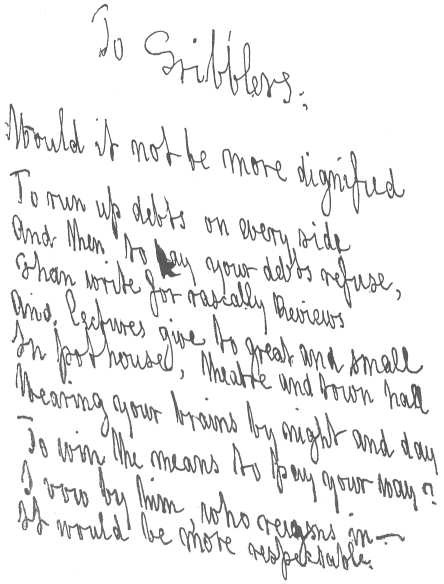 To Scribblers.
Would it not be more dignified
To run up debts on every side
And then to pay your debts refuse,
Than write for rascally Reviews
And lectures give to great and small
In pothouse, theatre and town hall
Wearing your brains by night and day
To win the means to pay your way?
I vow by him who reigns in —
It would be more respectable.